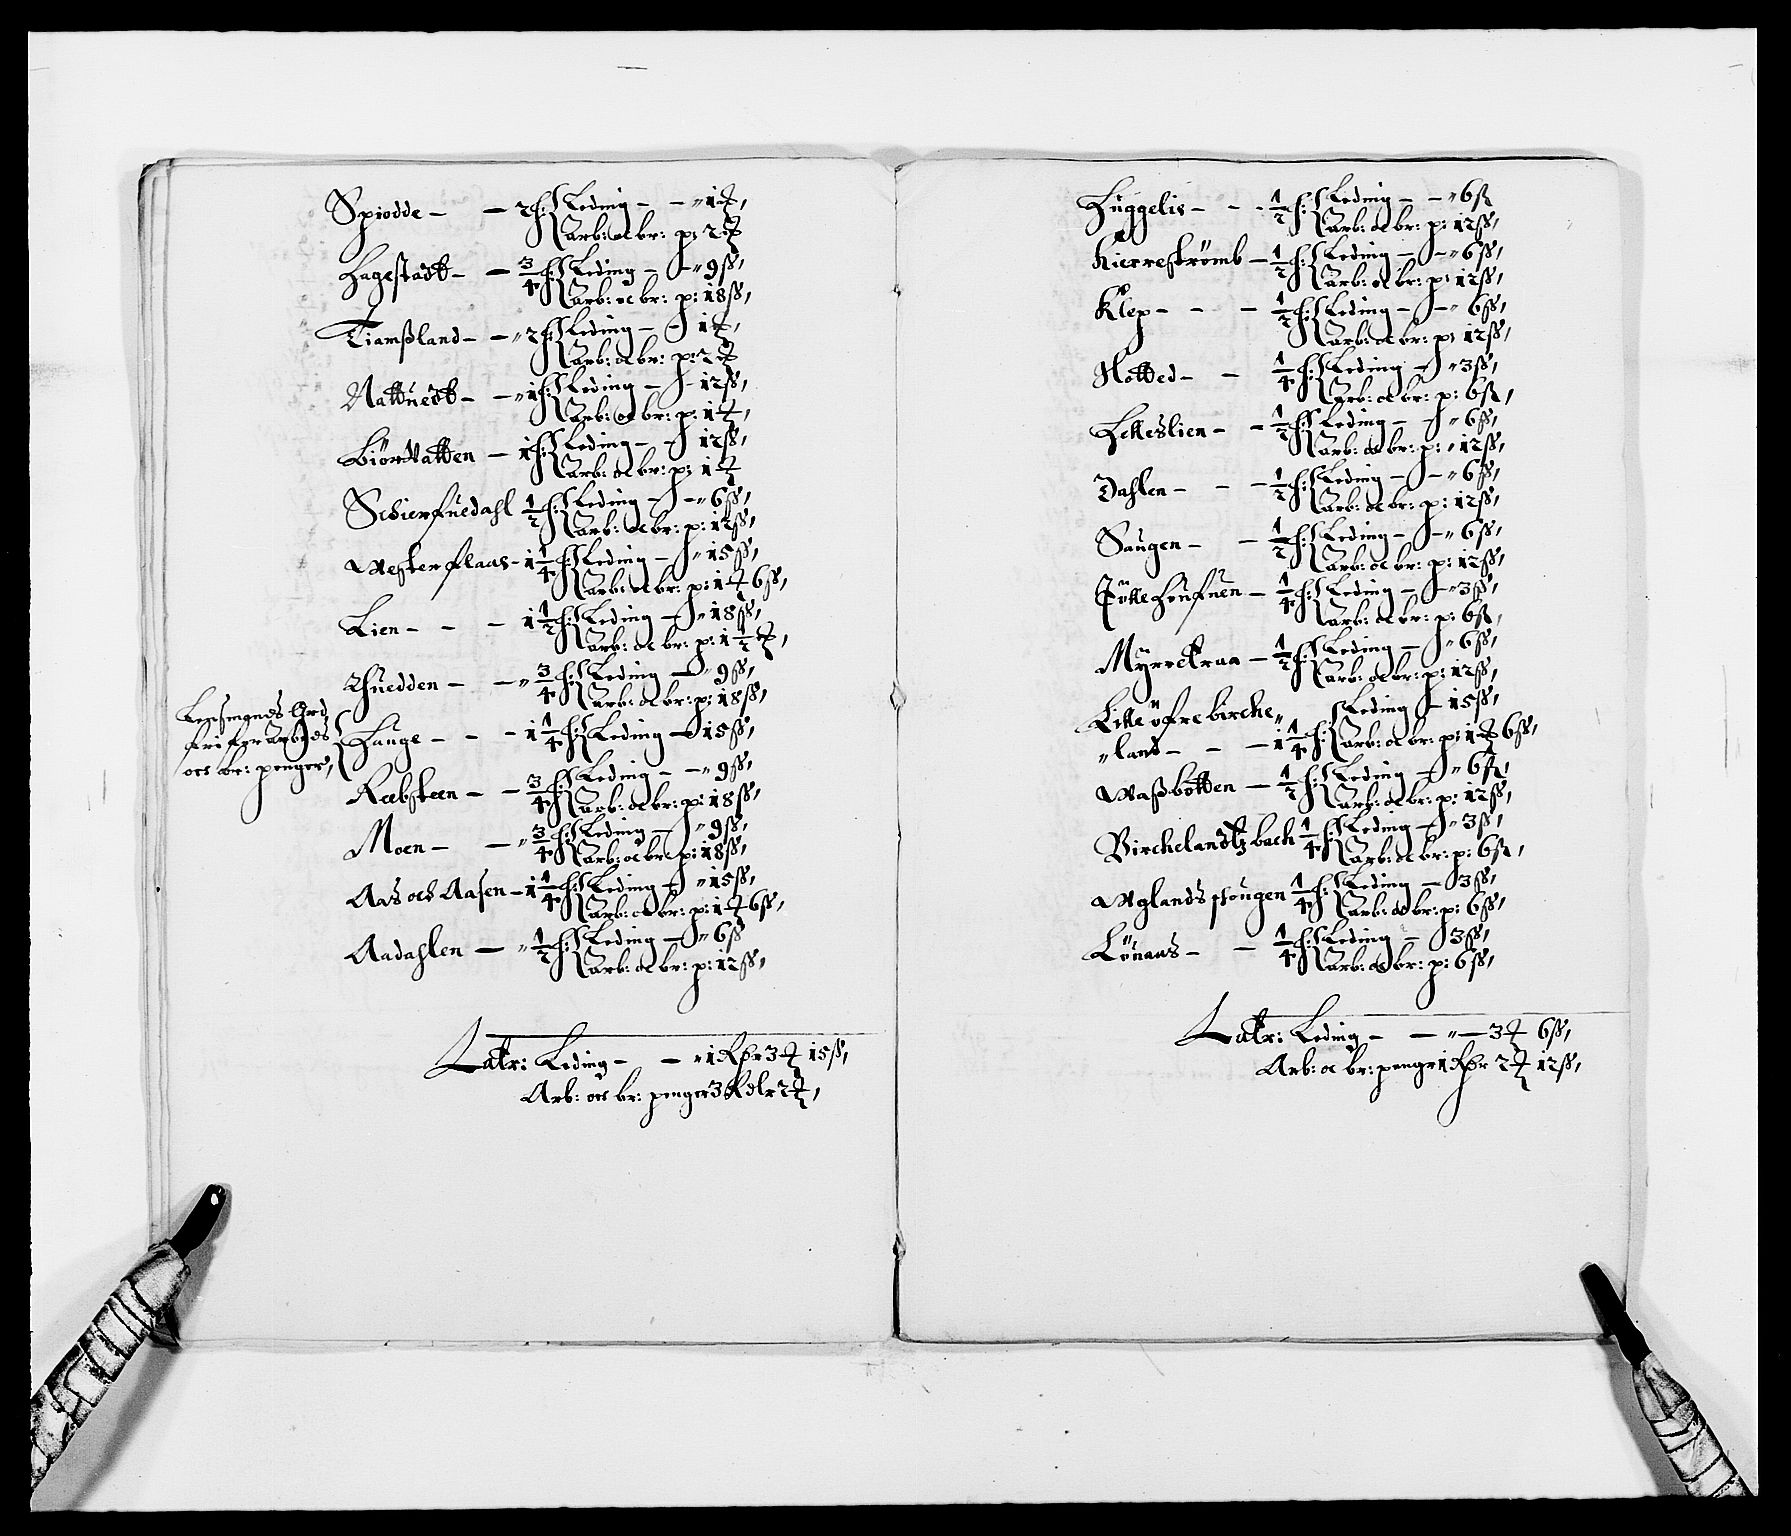 Spiodde – – 2 h: Leding – – " 1 ℔,
Arb: oc br: p: 2 ℔
Hagestadt – – 3/4 h: Leding – – " 9 ß,
Arb: oc br: p: 18 ß,
Tiamßland – – " 2 h: Leding – – 1 ℔,
Arb: oc br: p: 2 ℔
Nattuedt – – " 1 h: Leding – – 12 ß,
Arb: oc br: p: 1 ℔,
Biørvatten – 1 h: Leding – – 12 ß,
Arb: oc br: p: 1 ℔
Schierfuedahl 1/2 h: Leding – – " 6 ß,
Arb: oc br: p: 12 ß,
Westerflaas – 1 1/4 h: Leding – " 15 ß,
Arb: oc br: p: 1 ℔ 6 ß,
Lien – – – 1 1/2 h: Leding – " 18 ß,
Arb: oc br: p: 1 1/2 ℔,
Thuedden – – " 3/4 h: Leding – " 9 ß,
Arb: oc br: p: 18 ß,
Lensmands Grd,
fri for arbeds
och br: penger,
Hauge – – – 1 1/4 h: Leding – 15 ß,
Rebsteen – – 3/4 h: Leding – – " 9 ß,
Arb: oc br: p: 18 ß,
Moen – – " 3/4 h: Leding – " 9 ß,
Arb: oc br: p: 18 ß,
Aas och Aasen – 1 1/4 h: Leding – " 15 ß,
Arb: oc br: p: 1 ℔ 6 ß,
Aadahlen – " 1/2 h: Leding – " 6 ß
Arb: oc br: p: 12 ß,
Latr: Leding – – " 1 Rdr 3 ℔ 15 ß,
Arb: och br: penger 3 Rdlr 2 ℔,
Huggelis – – – 1/2 h: Leding – – " 6 ß
Arb: oc br: p: 12 ß,
Kierrestrømb – 1/2 h: Leding – – " 6 ß,
Arb: oc br: p: 12 ß,
Klep – – – 1/2 h: Leding – – " 6 ß,
Arb: oc br: p: 12 ß,
Hotted – – 1/4 h: Leding – " 3 ß,
Arb: oc br: p: 6 ß,
Lilleslien – – 1/2 h: Leding – – " 6 ß,
Arb: oc br: p: " 12 ß,
Dahlen – – – 1/2 h: Leding – – " 6 ß,
Arb: oc br: p: 12 ß,
Saugen – – 1/2 h: Leding – – " 6 ß,
Arb: oc br: p: 12 ß,
– 1/4 h: Leding – – " 3 ß,
Arb: oc br: p: 6 ß,
Myrrekraa – 1/2 h: Leding – " 6 ß,
Arb: oc br: p: 12 ß,
Lille øfre birche "
Leding – 15 ß,
" land – – – 1 1/4 h: Arb: oc br: p: 1 ℔ 6 ß,
Waßbotten – 1/2 h: Leding – " 6 ß,
Arb: oc br: p: 12 ß,
Birchelandtz bach 1/4 h: Leding – " 3 ß,
Arb: oc br: p: 6 ß,
Uglands 1/4 h: Leding – 3 ß,
Arb: oc br: p: 6 ß,
Lønaas – – 1/4 h: Leding – 3 ß,
Arb: oc br: p: 6 ß,
Latr: Leding – – " – 3 ℔ 6 ß,
Arb: oc br: pengr 1 Rdr 2 ℔ 12 ß,